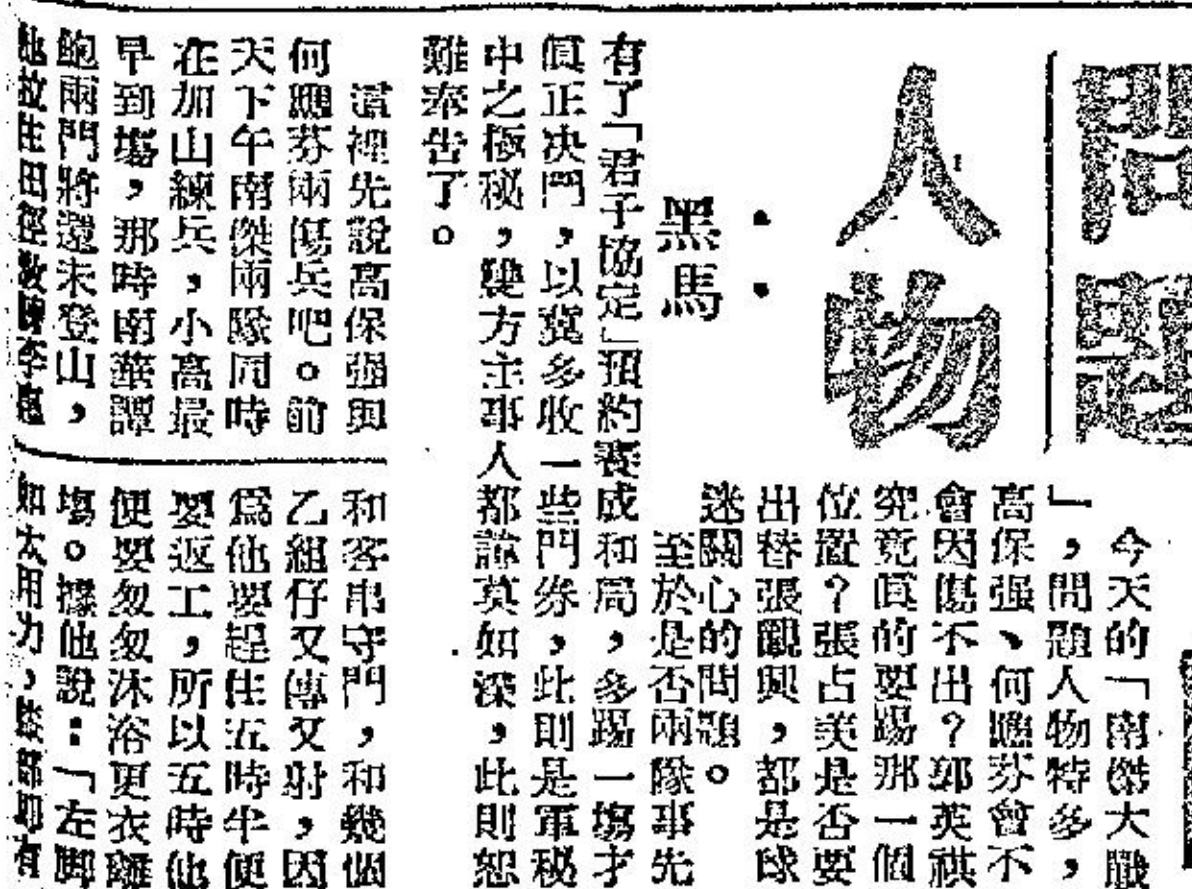 問題
人物
：黑馬
今天的「南傑大戰
」，問題人物特多，
高保强、何應芬會不
會因傷不出？郭英祺
究竟眞的要踢那一個
位置？張占美是否要
出替張觀興，都是球
迷關心的問題。
至於是否兩隊事先
有了「君子協定」預約賽成和局，多踢一塲才
眞正决鬥，以冀多收一些門券，此則是軍秘
中之極秘，雙方主事人都諱莫如深，此則恕
難奉告了。
這裡先說高保强與
何應芬兩傷兵吧。前
天下午南傑兩隊同時
在加山練兵，小高最
早到塲，那時南華譚
鮑兩門將還未登山，
他故往田徑敎練李惠
和客串守門，和幾個
乙組仔又傳又射，因
爲他要趕住五時半便
要返工，所以五時他
便要匆匆沐浴更衣離
塲。據他說：「左脚
如太用力，膝部即有